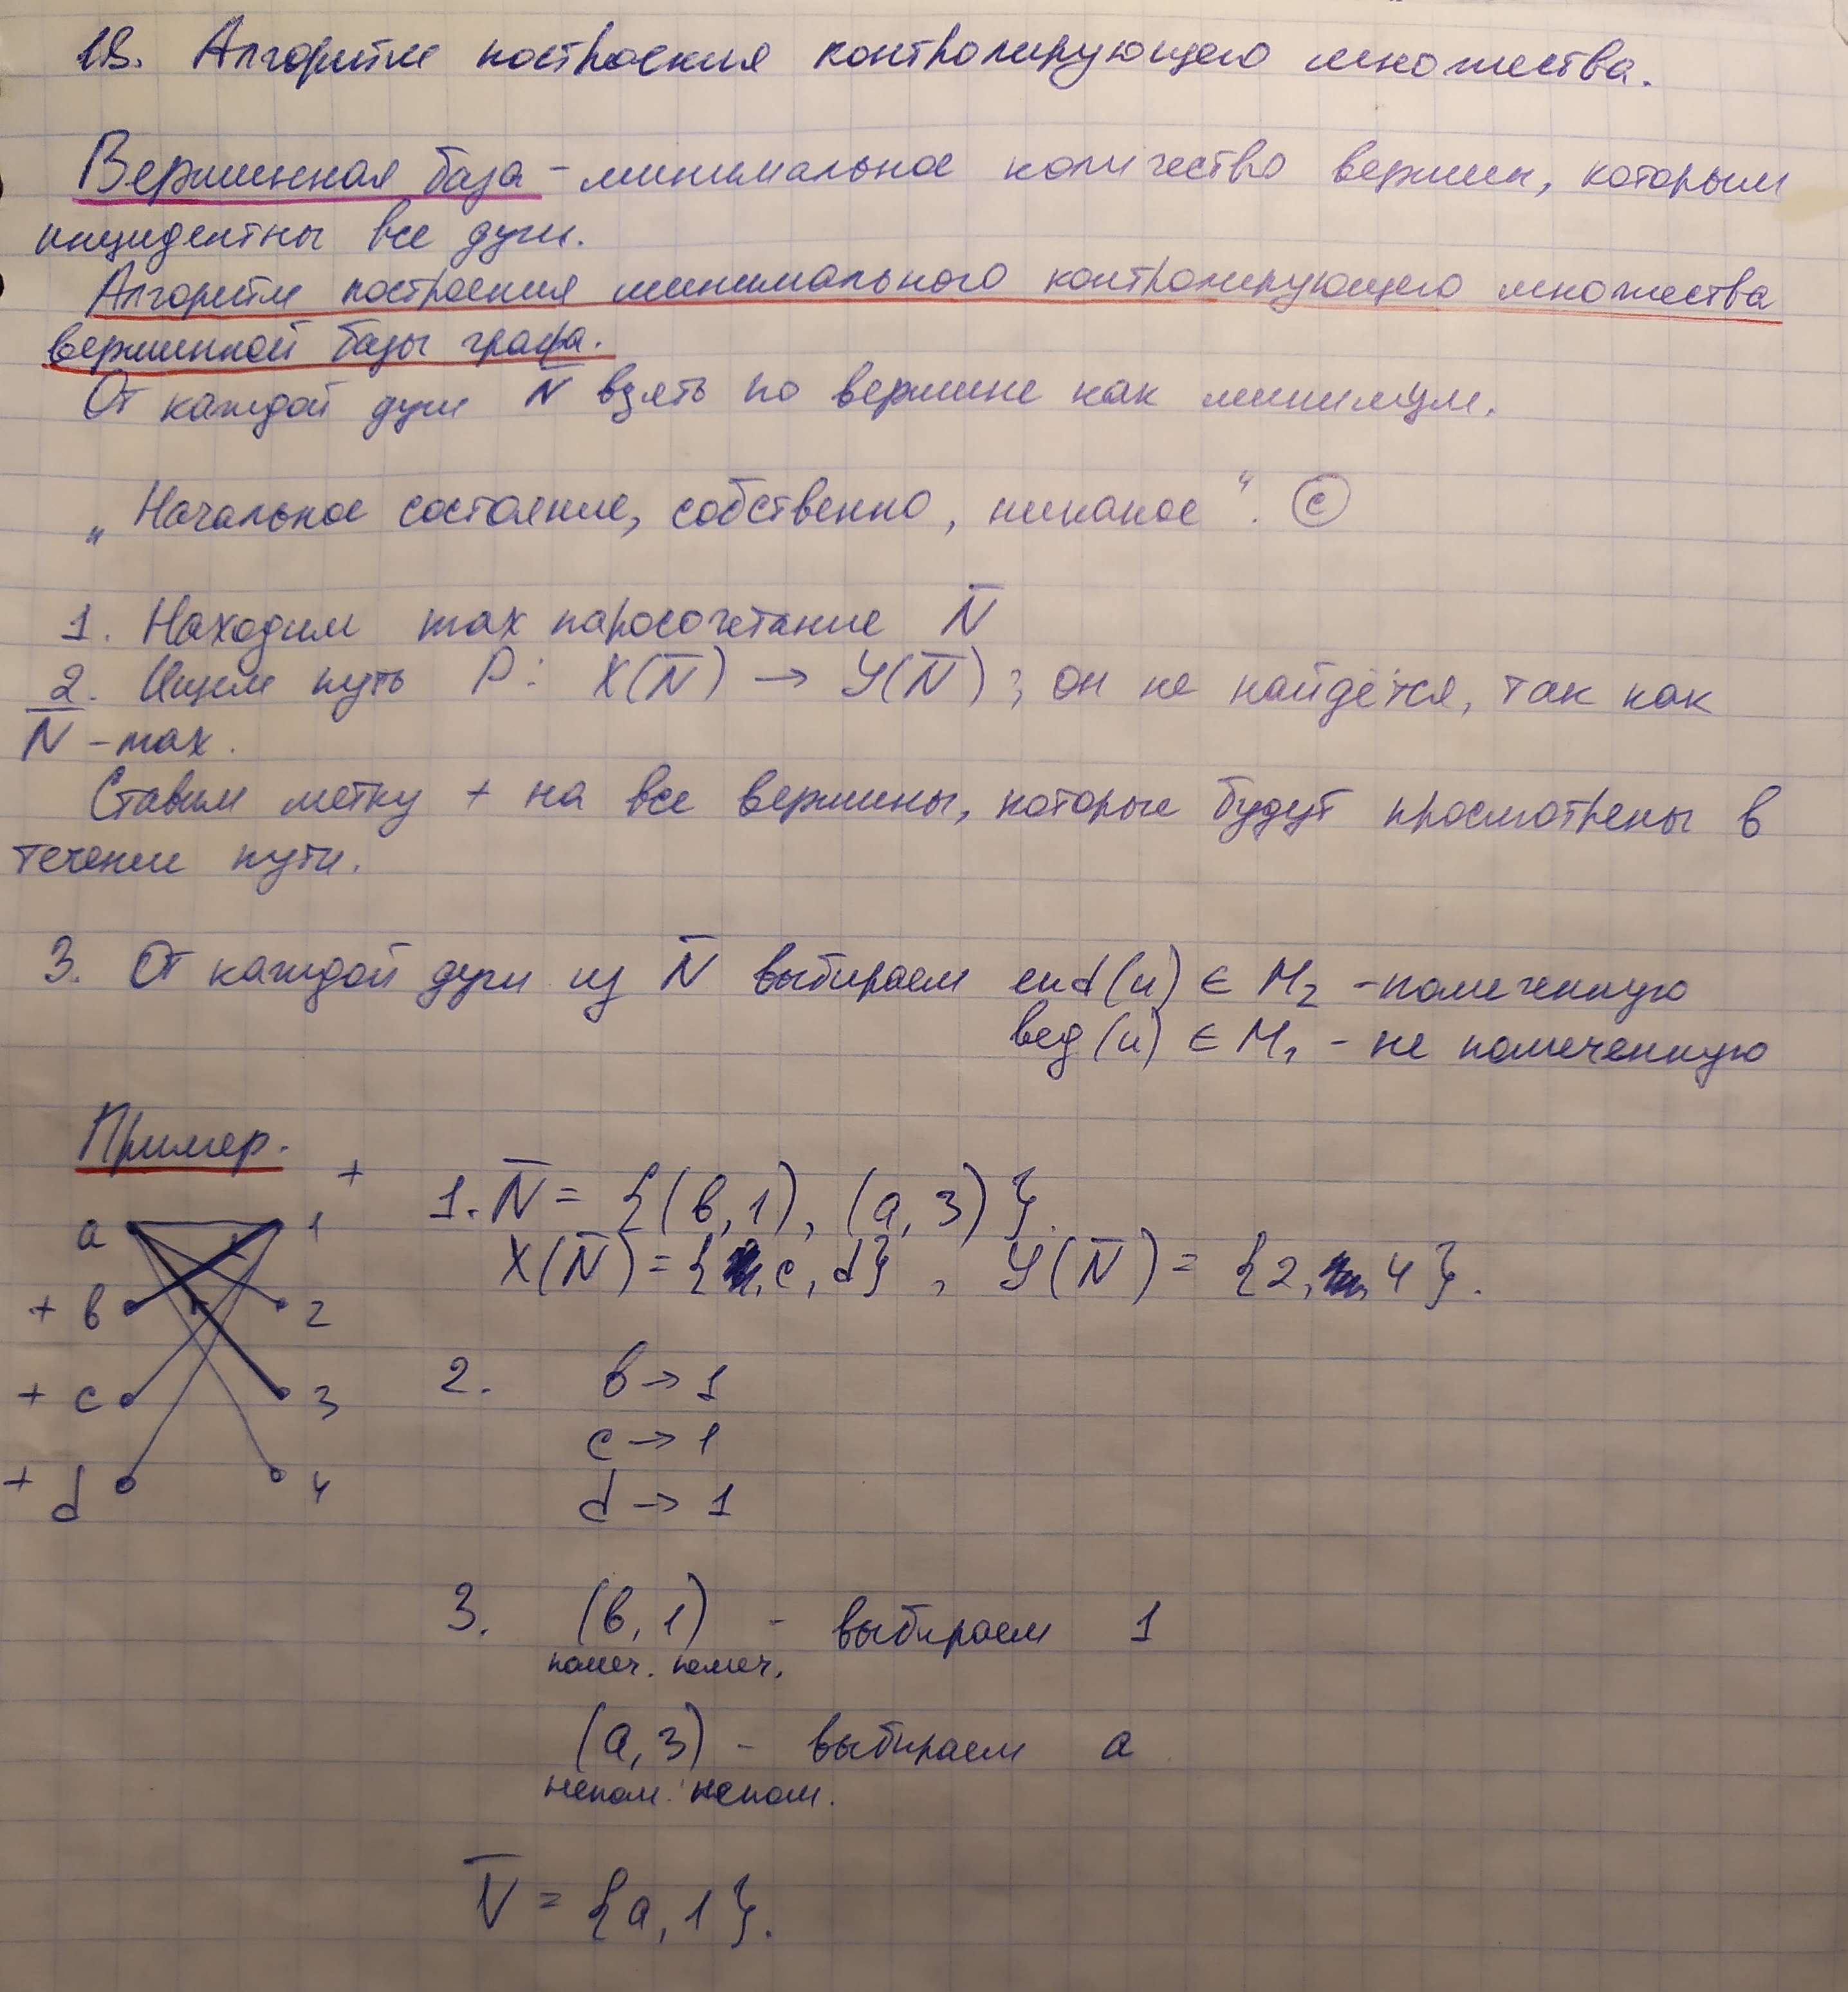 18. Алгоритм построения контролирующего множества.
Вершинная база - минимальное количество вершин, которым
инцидентны все дуги.
Алгоритм построения минимального контролирующего множества
вершинной базы графа.
От каждой дуги N̅ взять по вершине как минимум.
„Начальное состояние, собственно, никакое“. ©
1. Находим max паросочетание N̅
2. Ищем путь P: X(N̅) → Y(N̅); он не найдётся, так как
N̅ - max.
Ставим метку + на все вершины, которые будут просмотрены в
течении пути.
3. От каждой дуги из N̅ выбираем end(u) ∈ M₂ - помеченную
beg(u) ∈ M₁ - не помеченную
Пример.
+
a 1
+ b 2
+ c 3
+ d 4
1. N̅ = {(b,1), (a,3)}.
X(N̅) = {c, d}, Y(N̅) = {2, 4}.
2. b → 1
c → 1
d → 1
3. (b,1) - выбираем 1
помеч. помеч.
(a,3) - выбираем a
непом. непом.
V̅ = {a, 1}.